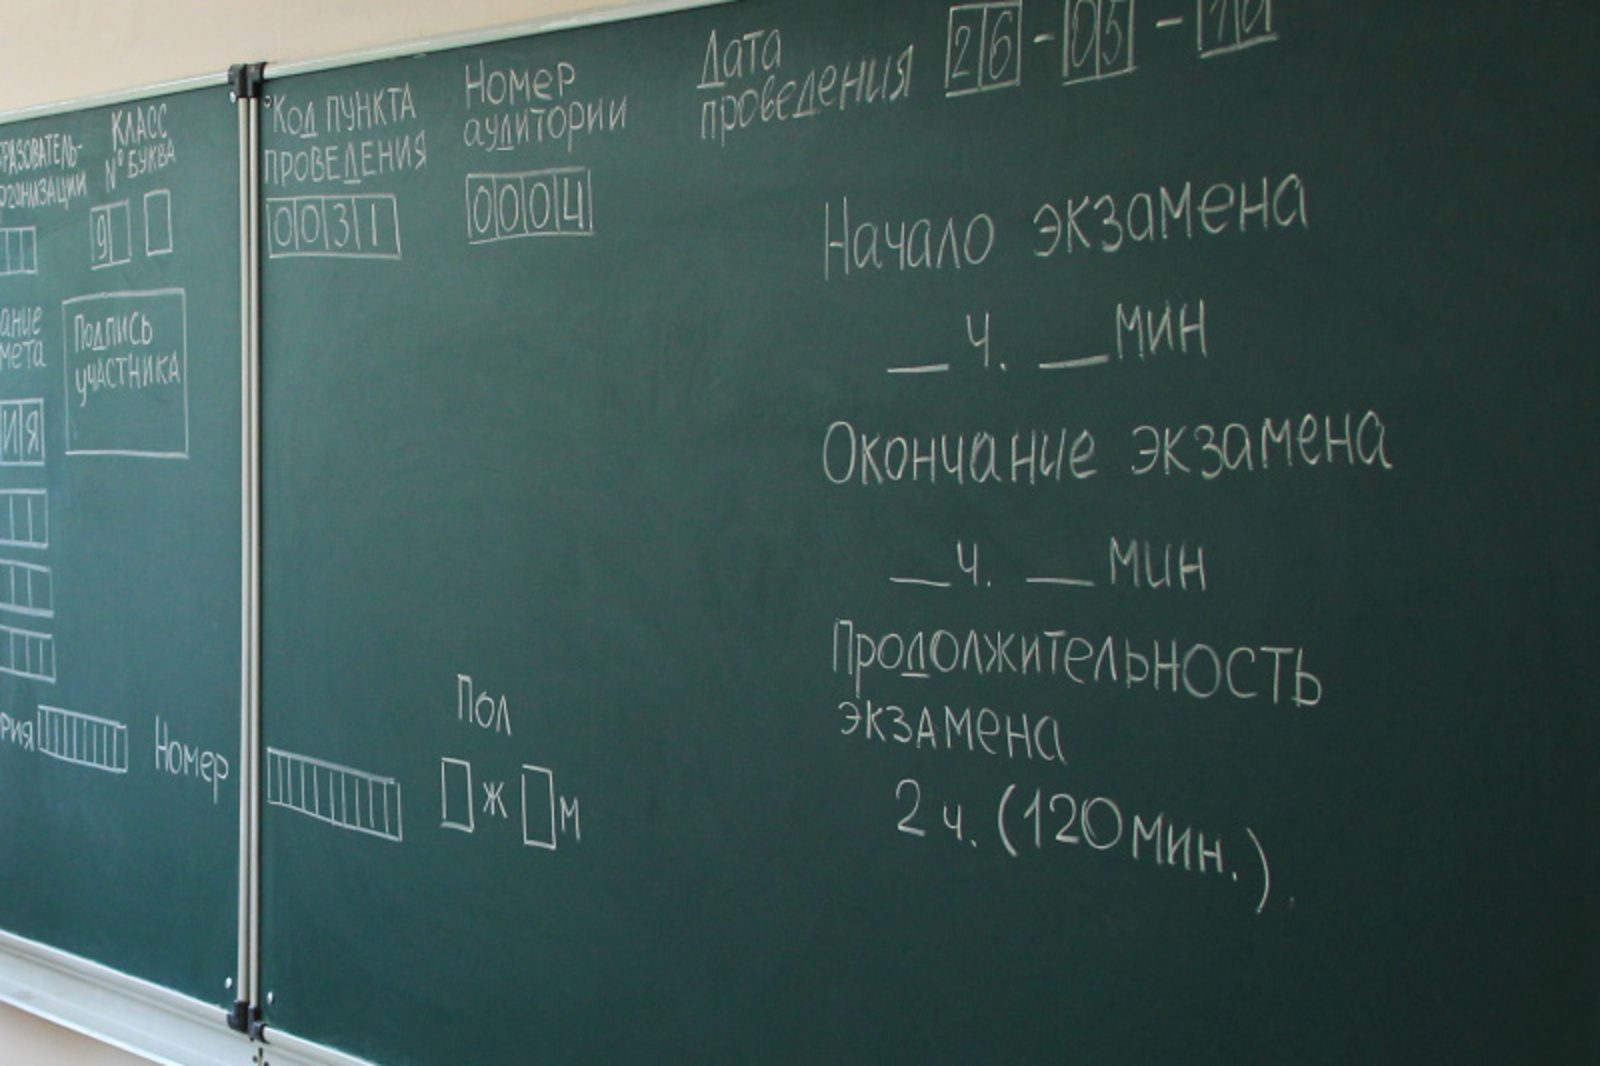 КЛАСС
N° БУКВА
9
Подпись
участника
Номер
Код ПУНКТА
ПРОВЕДЕНИЯ
0031
Номер
аудитории
0004
Дата
проведения 26-05-
Начало экзамена
__ ч. __ мин
Окончание экзамена
__ ч. __ мин
Продолжительность
экзамена
2 ч. (120 мин.).
Пол
Ж М